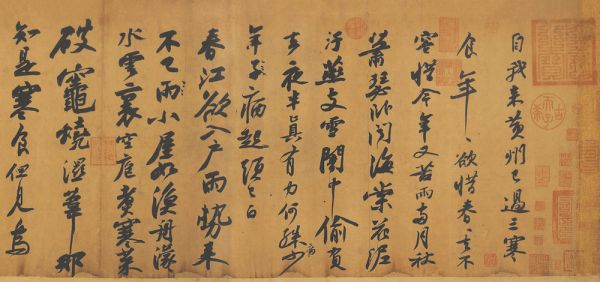 自我来黄州已過三寒
食年〻欲惜春〻去不
容惜今年又苦雨兩月秋
蕭瑟卧聞海棠花泥
汙燕支雪闇中偷負
去夜半真有力何殊病少
年子病起頭已白
春江欲入户雨勢来
不已雨小屋如漁舟濛〻
水雲裏空庖煑寒菜
破竈燒濕葦那
知是寒食但見烏